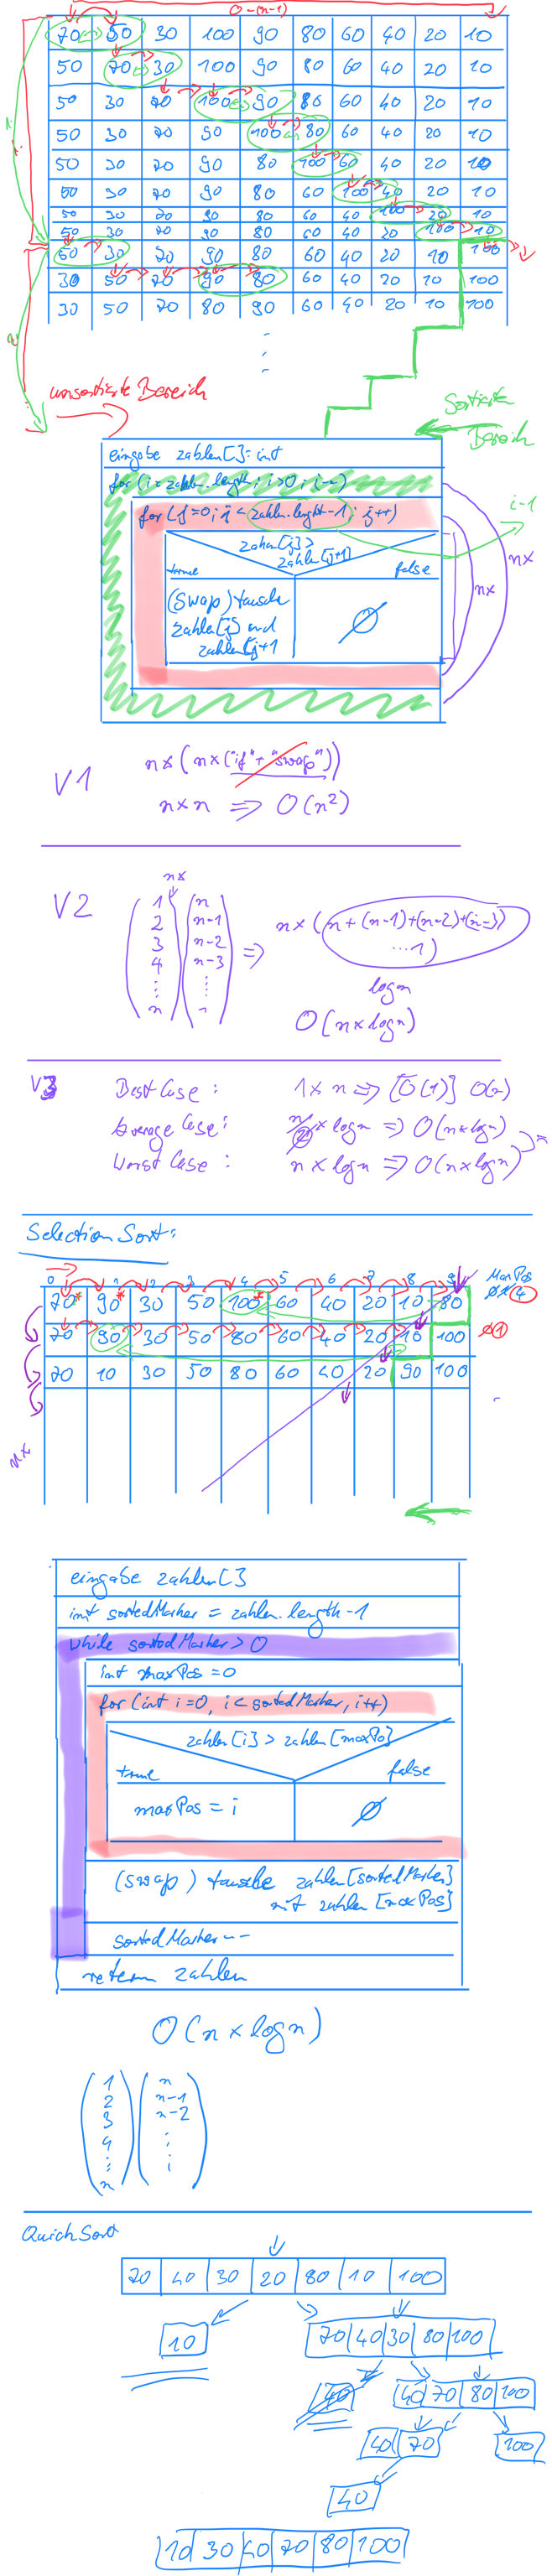 0-(n-1)
70 50 30 100 90 80 60 40 20 10
50 70 30 100 90 80 60 40 20 10
50 30 70 100 90 80 60 40 20 10
50 30 70 90 100 80 60 40 20 10
50 30 70 90 80 100 60 40 20 10
50 30 70 90 80 60 100 40 20 10
50 30 70 90 80 60 40 100 20 10
50 30 70 90 80 60 40 20 100 10
50 30 70 90 80 60 40 20 10 100
30 50 70 90 80 60 40 20 10 100
30 50 70 80 90 60 40 20 10 100
unsortierte Bereich
Sortierte
Bereich
eingabe zahlen[]: int
for (i = zahlen.length; i>0; i--)
for (j=0; j < zahlen.lenght-1; j++)
i-1
zahlen[j] >
zahlen[j+1]
true false
(Swap) tausche
zahlen[j] und
zahlen[j+1
nx
nx
V1
n x (n x ("if" + "swap"))
n x n => O(n²)
V2
nx
1 n
2 n-1
3 n-2
4 n-3
n
=> n x (n + (n-1)+(n-2)+(n-3)
...1)
log n
O(n x log n)
V3 Best Case: 1 x n => [O(1)] O(n)
Average Case: n/2 x log n => O(n x log n)
Worst Case: n x log n => O(n x log n)
Selection Sort:
0 1 2 3 4 5 6 7 8 9 MaxPos
70 90 30 50 100 60 40 20 10 80 0 1 4
70 90 30 50 80 60 40 20 10 100 0 1
70 10 30 50 80 60 40 20 90 100
nx
eingabe zahlen[]
int sortedMarker = zahlen.length-1
while sortedMarker > 0
int maxPos = 0
for (int i=0, i < sortedMarker, i++)
zahlen[i] > zahlen[maxPo]
true false
maxPos = i
(swap) tausche zahlen[sortedMarker]
mit zahlen[maxPos]
sortedMarker--
return zahlen
O(n x log n)
1 n
2 n-1
3 n-2
4
n
QuichSort
70 40 30 20 80 10 100
10
70 40 30 80 100
40 70 80 100
40 70
100
40
10 30 40 70 80 100